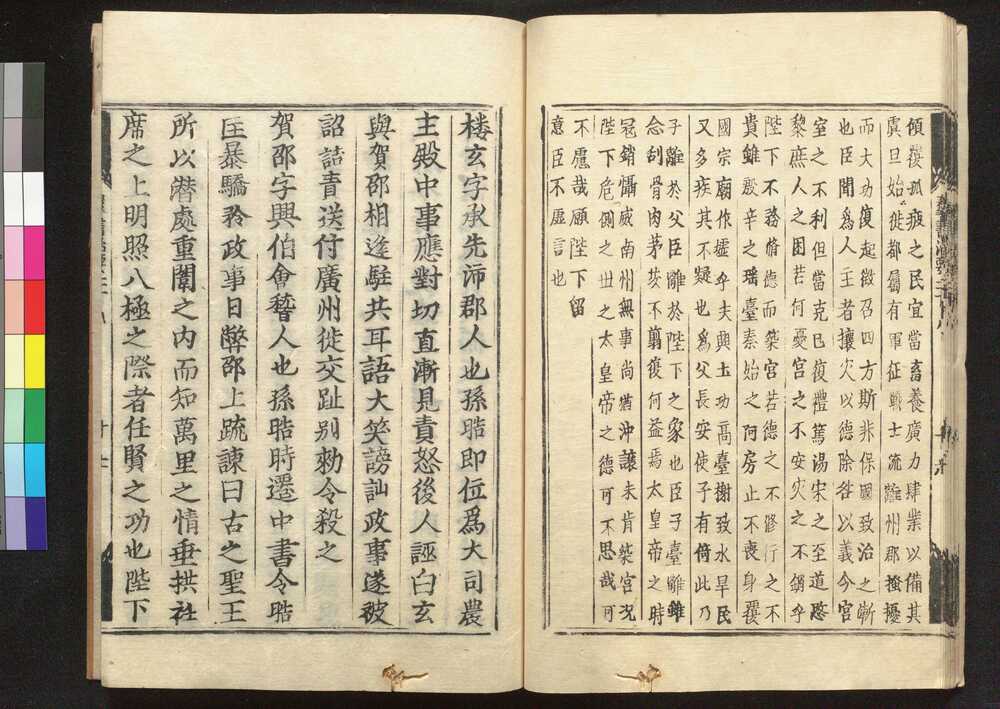 傾復孤疲之民宜當畜養廣力肆業以備其
虞且始徙都屬有軍征戰士流離州郡搔擾
而大功復起徵召四方斯非保國致治之漸
也臣聞爲人主者攘灾以德除咎以義今宮
室之不利但當克已復禮篤湯宋之至道愍
黎庶人之困苦何憂宮之不安灾之不銷乎
陛下不務脩德而築宮若德之不修行之不
貴雖殷辛之瑶臺秦始之阿房止不喪身覆
國宗廟作墟乎夫興土功高臺榭致水旱民
又多疾其不疑也爲父長安使子有倚此乃
子離於父臣離於陛下之象也臣子臺離雖
念刻骨肉茅茨不翦復何益焉太皇帝之時
冦銷懾威南州無事尚猶沖讓未肯築宮況
陛下危側之世之太皇帝之德可不思哉可
不慮哉願陛下留
意臣不虛言也
樓玄字承先沛郡人也孫晧即位爲大司農
主殿中事應對切直漸見責怒後人誣白玄
與賀邵相逢駐共耳語大笑謗訕政事遂被
詔詰責送付廣州徙交趾别勑令殺之
賀邵字興伯會嵇人也孫晧時遷中書令晧
匡暴驕矜政事日弊邵上疏諫曰古之聖王
所以潜處重闈之内而知萬里之情垂拱社
席之上明照八極之際者任賢之功也陛下